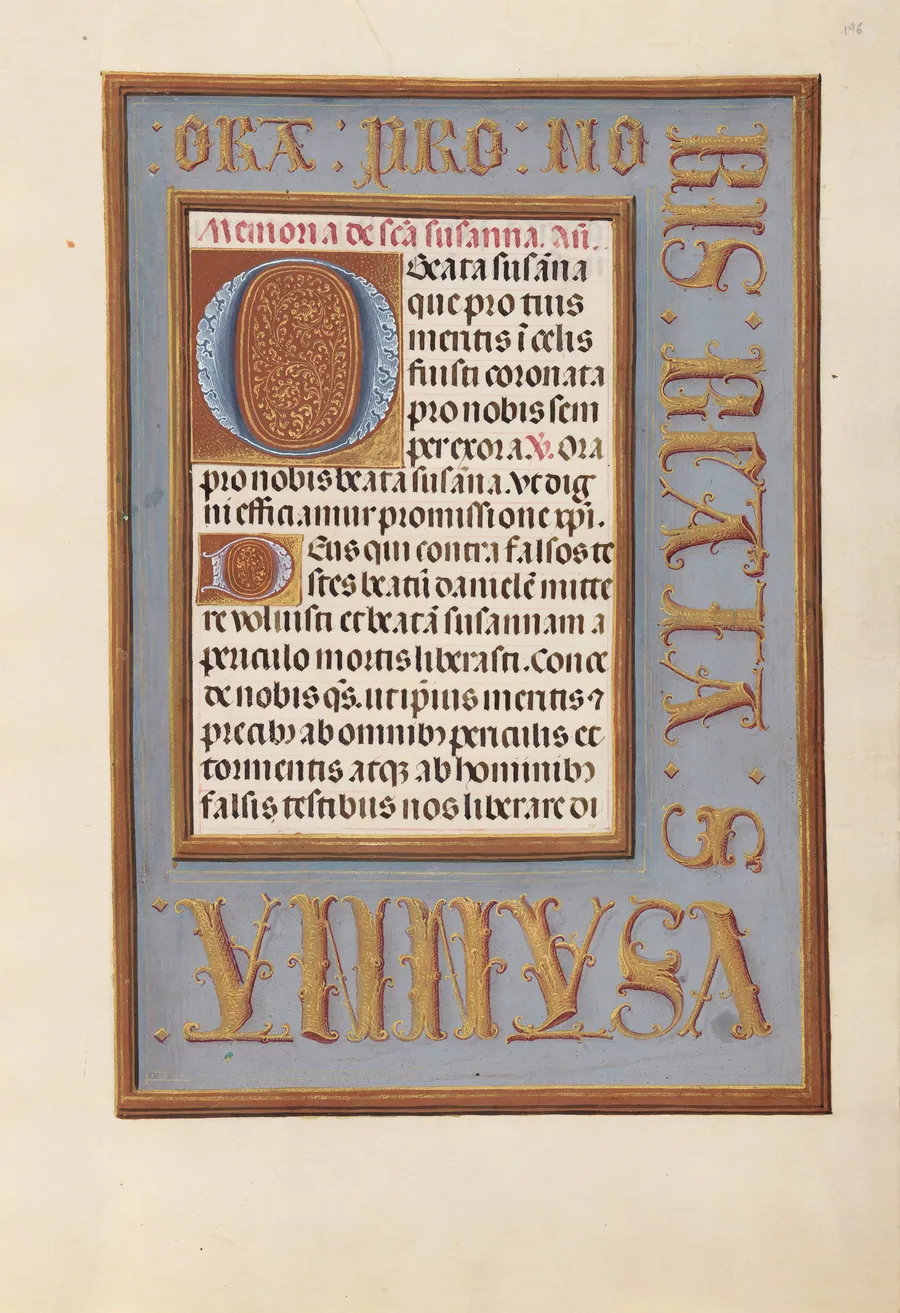 196
: ORA : PRO : NO
BIS : BEATA : S
VSANNA :
Memoria de scā susanna. Añ.
O Beata susāna
que pro tuis
meritis ī celis
fuisti coronata
pro nobis sem
per exora. ℣. Ora
pro nobis beata susāna. Vt dig
ni efficiamur promissione xp̄i.
Deus qui contra falsos te
stes beatū danielē mitte
re voluisti et beatā susannam a
periculo mortis liberasti. Conce
de nobis qs̄. ut ip̄ius meritis ⁊
precibꝫ ab omnibꝫ periculis et
tormentis atqꝫ ab hominibꝫ
falsis testibus nos liberare di